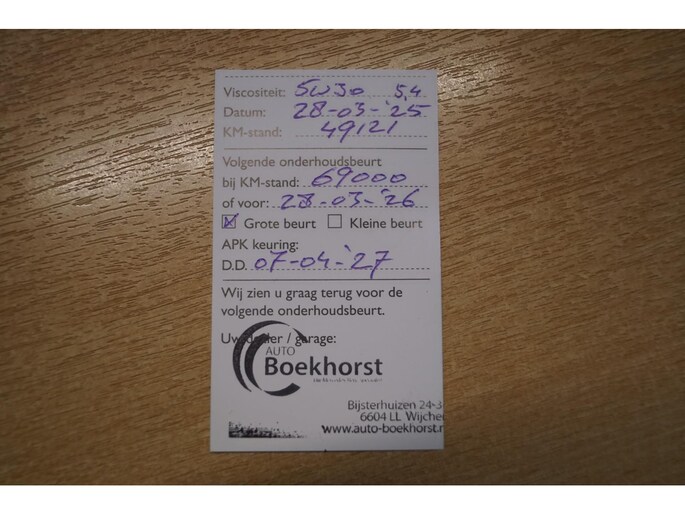 Viscositeit: 5W30 5,4
Datum: 28-03-'25
KM-stand: 49121
Volgende onderhoudsbeurt
bij KM-stand: 69000
of voor: 28-03-'26
Grote beurt Kleine beurt
APK keuring:
D.D. 07-04-'27
Wij zien u graag terug voor de
volgende onderhoudsbeurt.
Uw dealer / garage:
AUTO
Boekhorst
Bijsterhuizen 24-3
6604 LL Wijche
www.auto-boekhorst.n